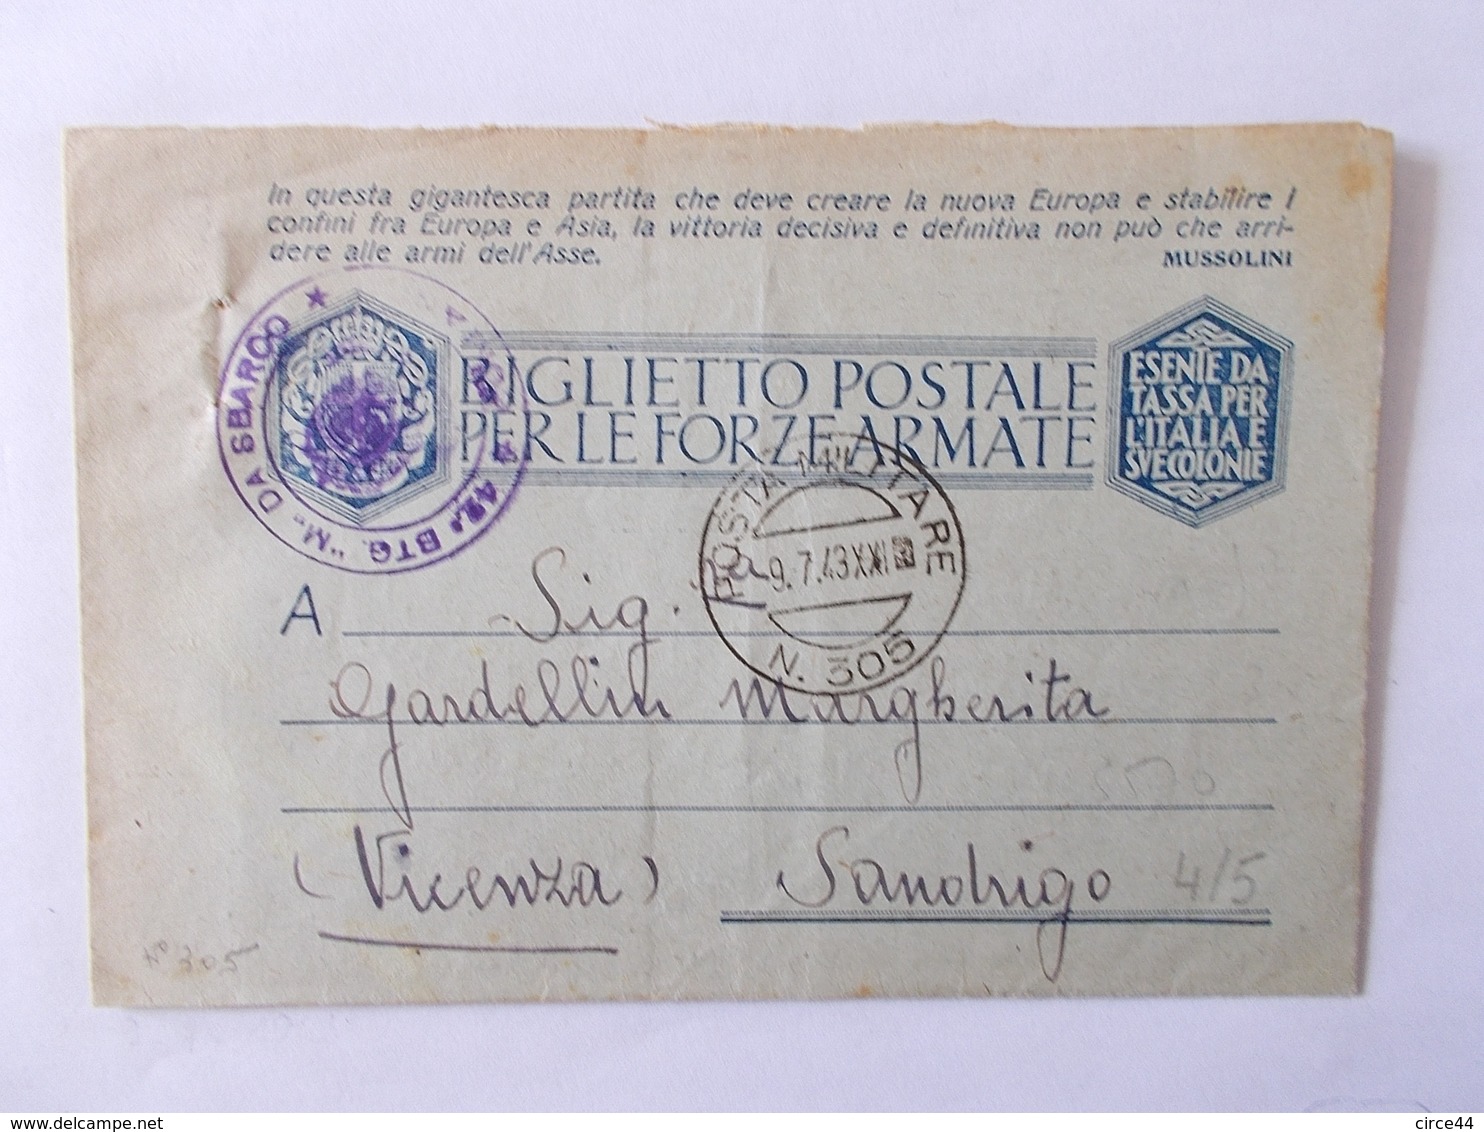 In questa gigantesca partita che deve creare la nuova Europa e stabilire i
confini fra Europa e Asia, la vittoria decisiva e definitiva non può che arri-
dere alle armi dell'Asse.
MUSSOLINI
42° BTG. "M" DA SBARCO
BIGLIETTO POSTALE
PER LE FORZE ARMATE
ESENTE DA
TASSA PER
L'ITALIA E
SVE COLONIE
POSTA MILITARE
9.7.43 XXI
N. 305
A Sig.na
Gardellin Margherita
(Vicenza) Sandrigo
4/5
N° 305
delcampe.net
circe44